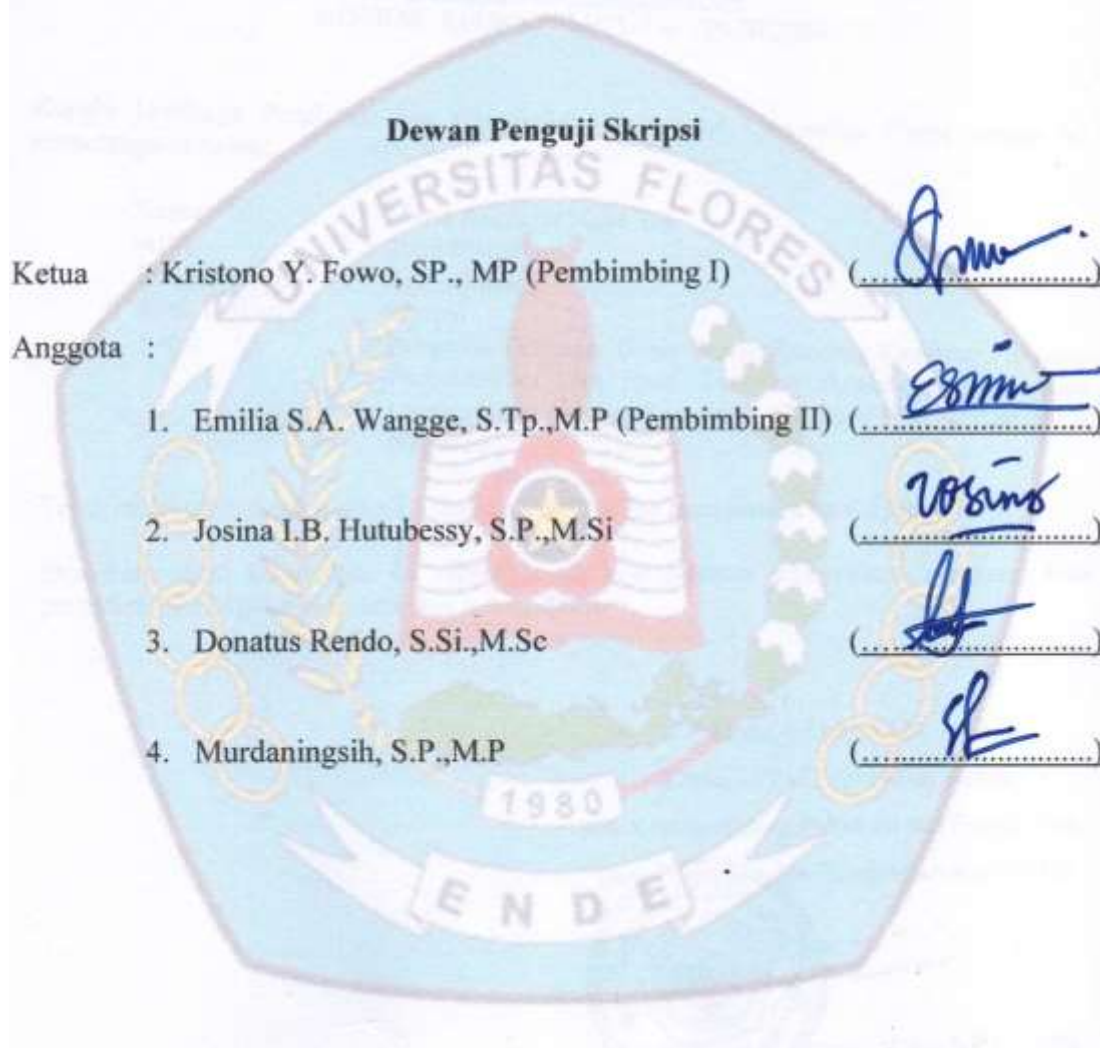 Dewan Penguji Skripsi
UNIVERSITAS FLORES
Ketua : Kristono Y. Fowo, SP., MP (Pembimbing I) (..............................)
Anggota :
1. Emilia S.A. Wangge, S.Tp.,M.P (Pembimbing II) (..............................)
2. Josina I.B. Hutubessy, S.P.,M.Si (..............................)
3. Donatus Rendo, S.Si.,M.Sc (..............................)
4. Murdaningsih, S.P.,M.P (..............................)
1980
ENDE